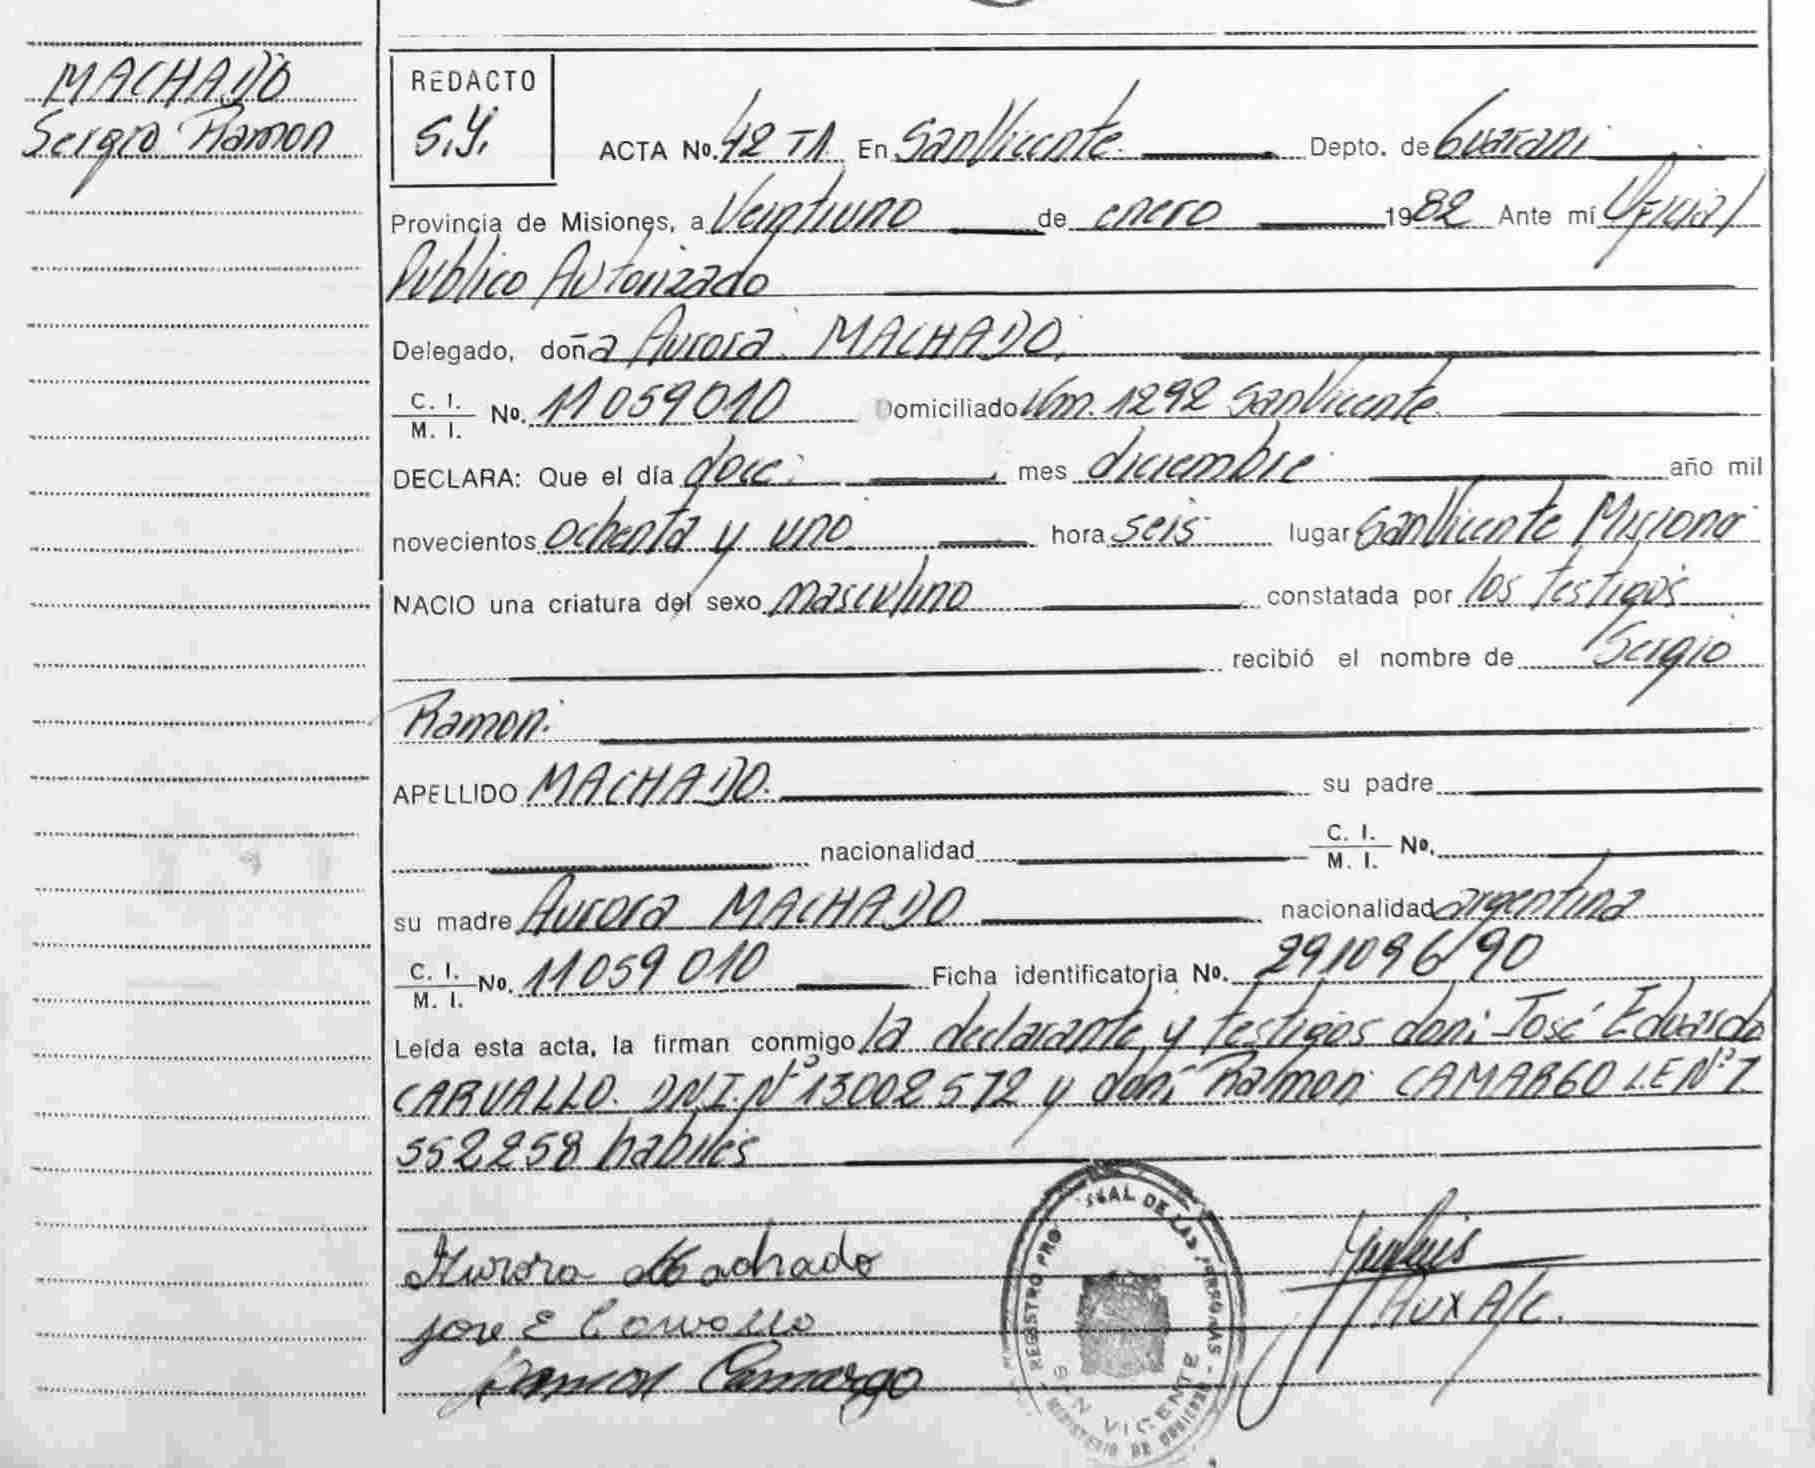 MACHADO
Sergio Ramon
REDACTO
S.Y.
ACTA No. 42 T1 En San Vicente Depto. de Guarani
Provincia de Misiones, a Veintiuno de enero 1982 Ante mí Oficial
Publico Autorizado
Delegado, doña Aurora MACHADO.
C. I. / M. I. No. 11059010 Domiciliado Km. 1292 San Vicente
DECLARA: Que el día doce mes diciembre año mil
novecientos ochenta y uno hora seis lugar San Vicente Misiones
NACIO una criatura del sexo masculino constatada por los testigos
recibió el nombre de Sergio
Ramon.
APELLIDO MACHADO. su padre
nacionalidad C. I. / M. I. No.
su madre Aurora MACHADO nacionalidad argentina
C. I. / M. I. No. 11059010 Ficha identificatoria No. 291096/90
Leída esta acta, la firman conmigo la declarante y testigos don: José Eduardo
CARVALLO. D.N.I. Nº 13002572 y don: Ramon CAMARGO L.E Nº 7
552258 habiles
Aurora Machado
Jose E Carvallo
Ramon Camargo
Aux A/C.
REGISTRO DE LAS PERSONAS
SAN VICENTE
MINISTERIO DE GOBIERNO